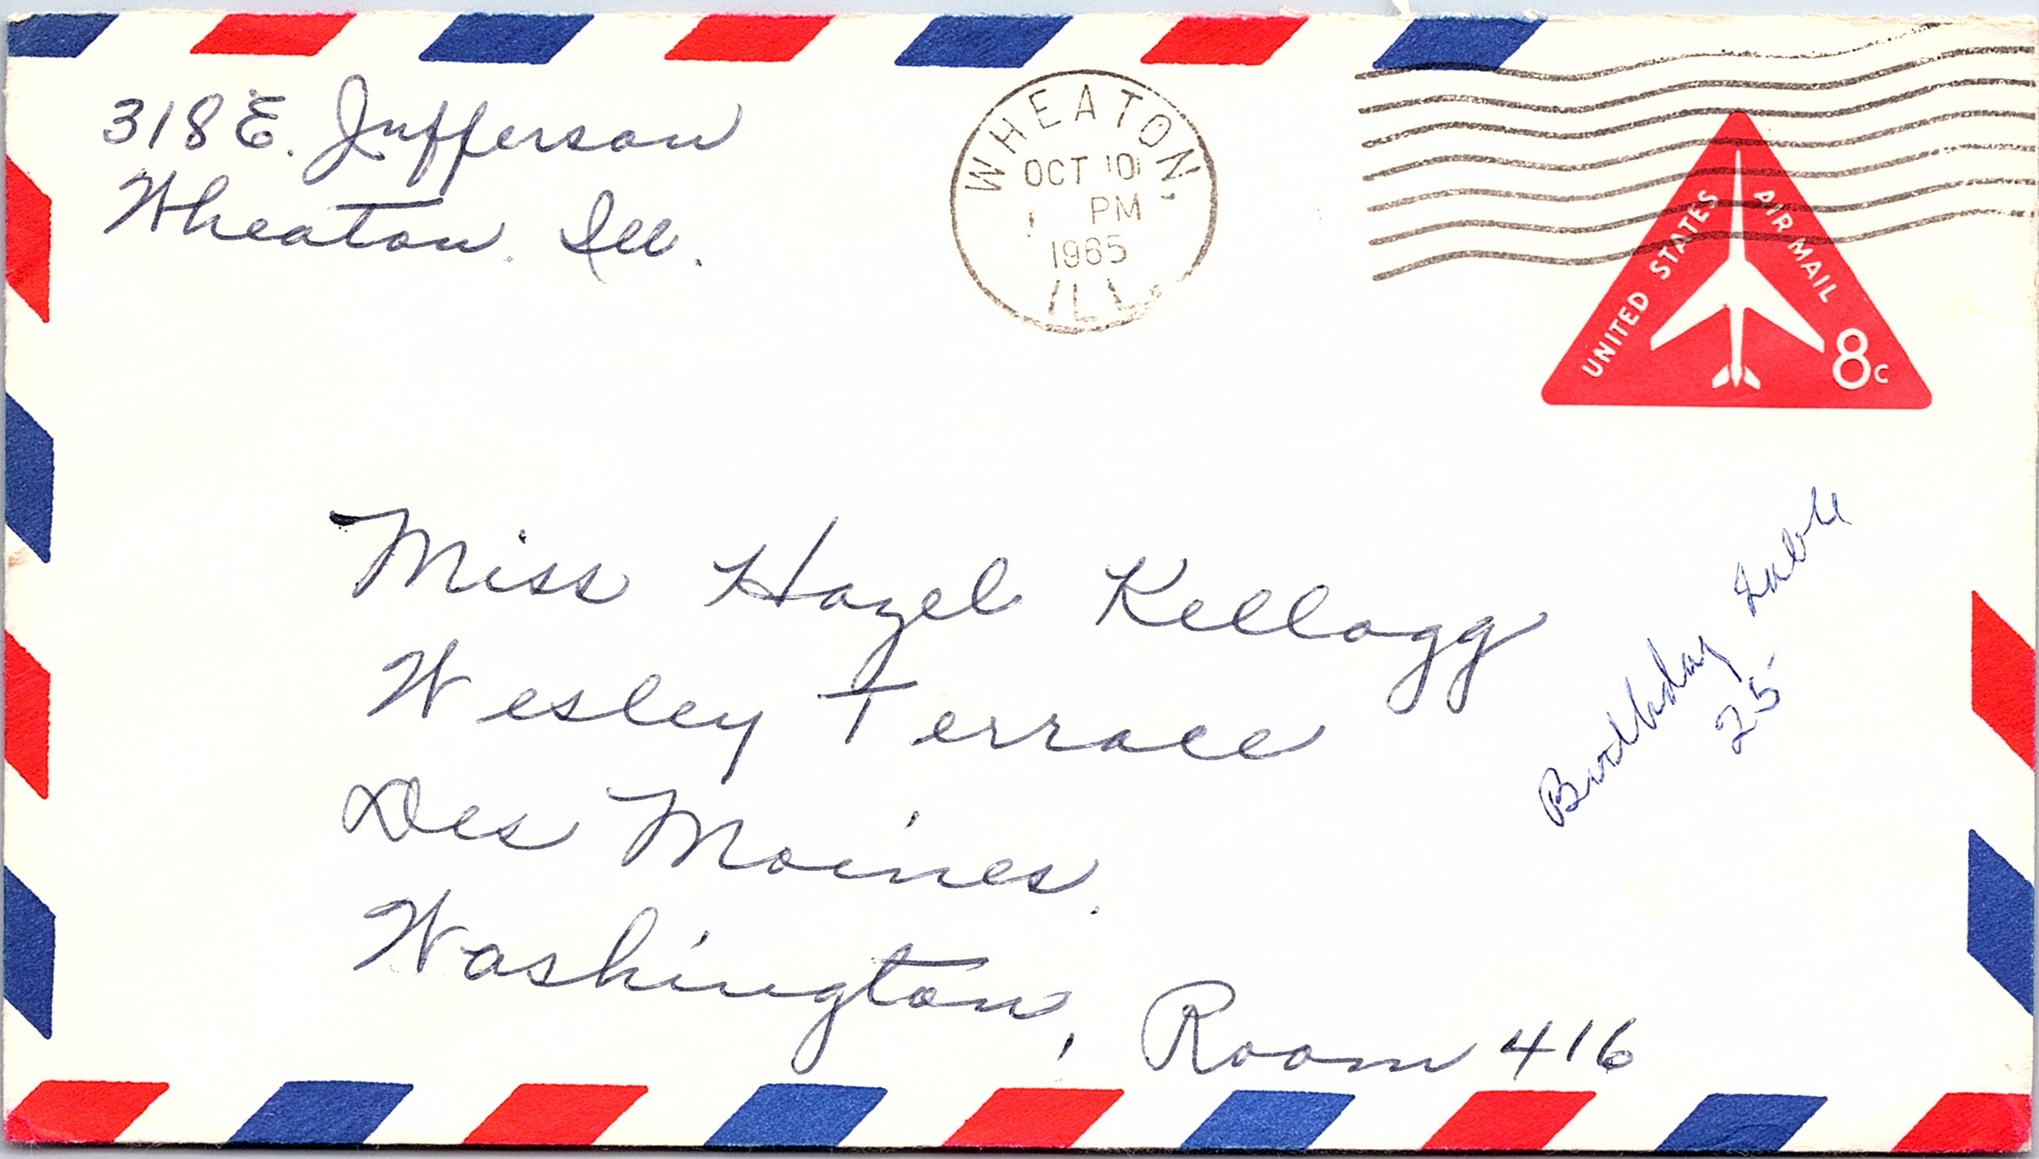 318 E. Jefferson
Wheaton. Ill.
WHEATON,
OCT 10
PM
1965
ILL.
UNITED STATES AIR MAIL
8c
Miss Hazel Kellogg
Wesley Terrace
Des Moines.
Washington, Room 416
Birthday
25